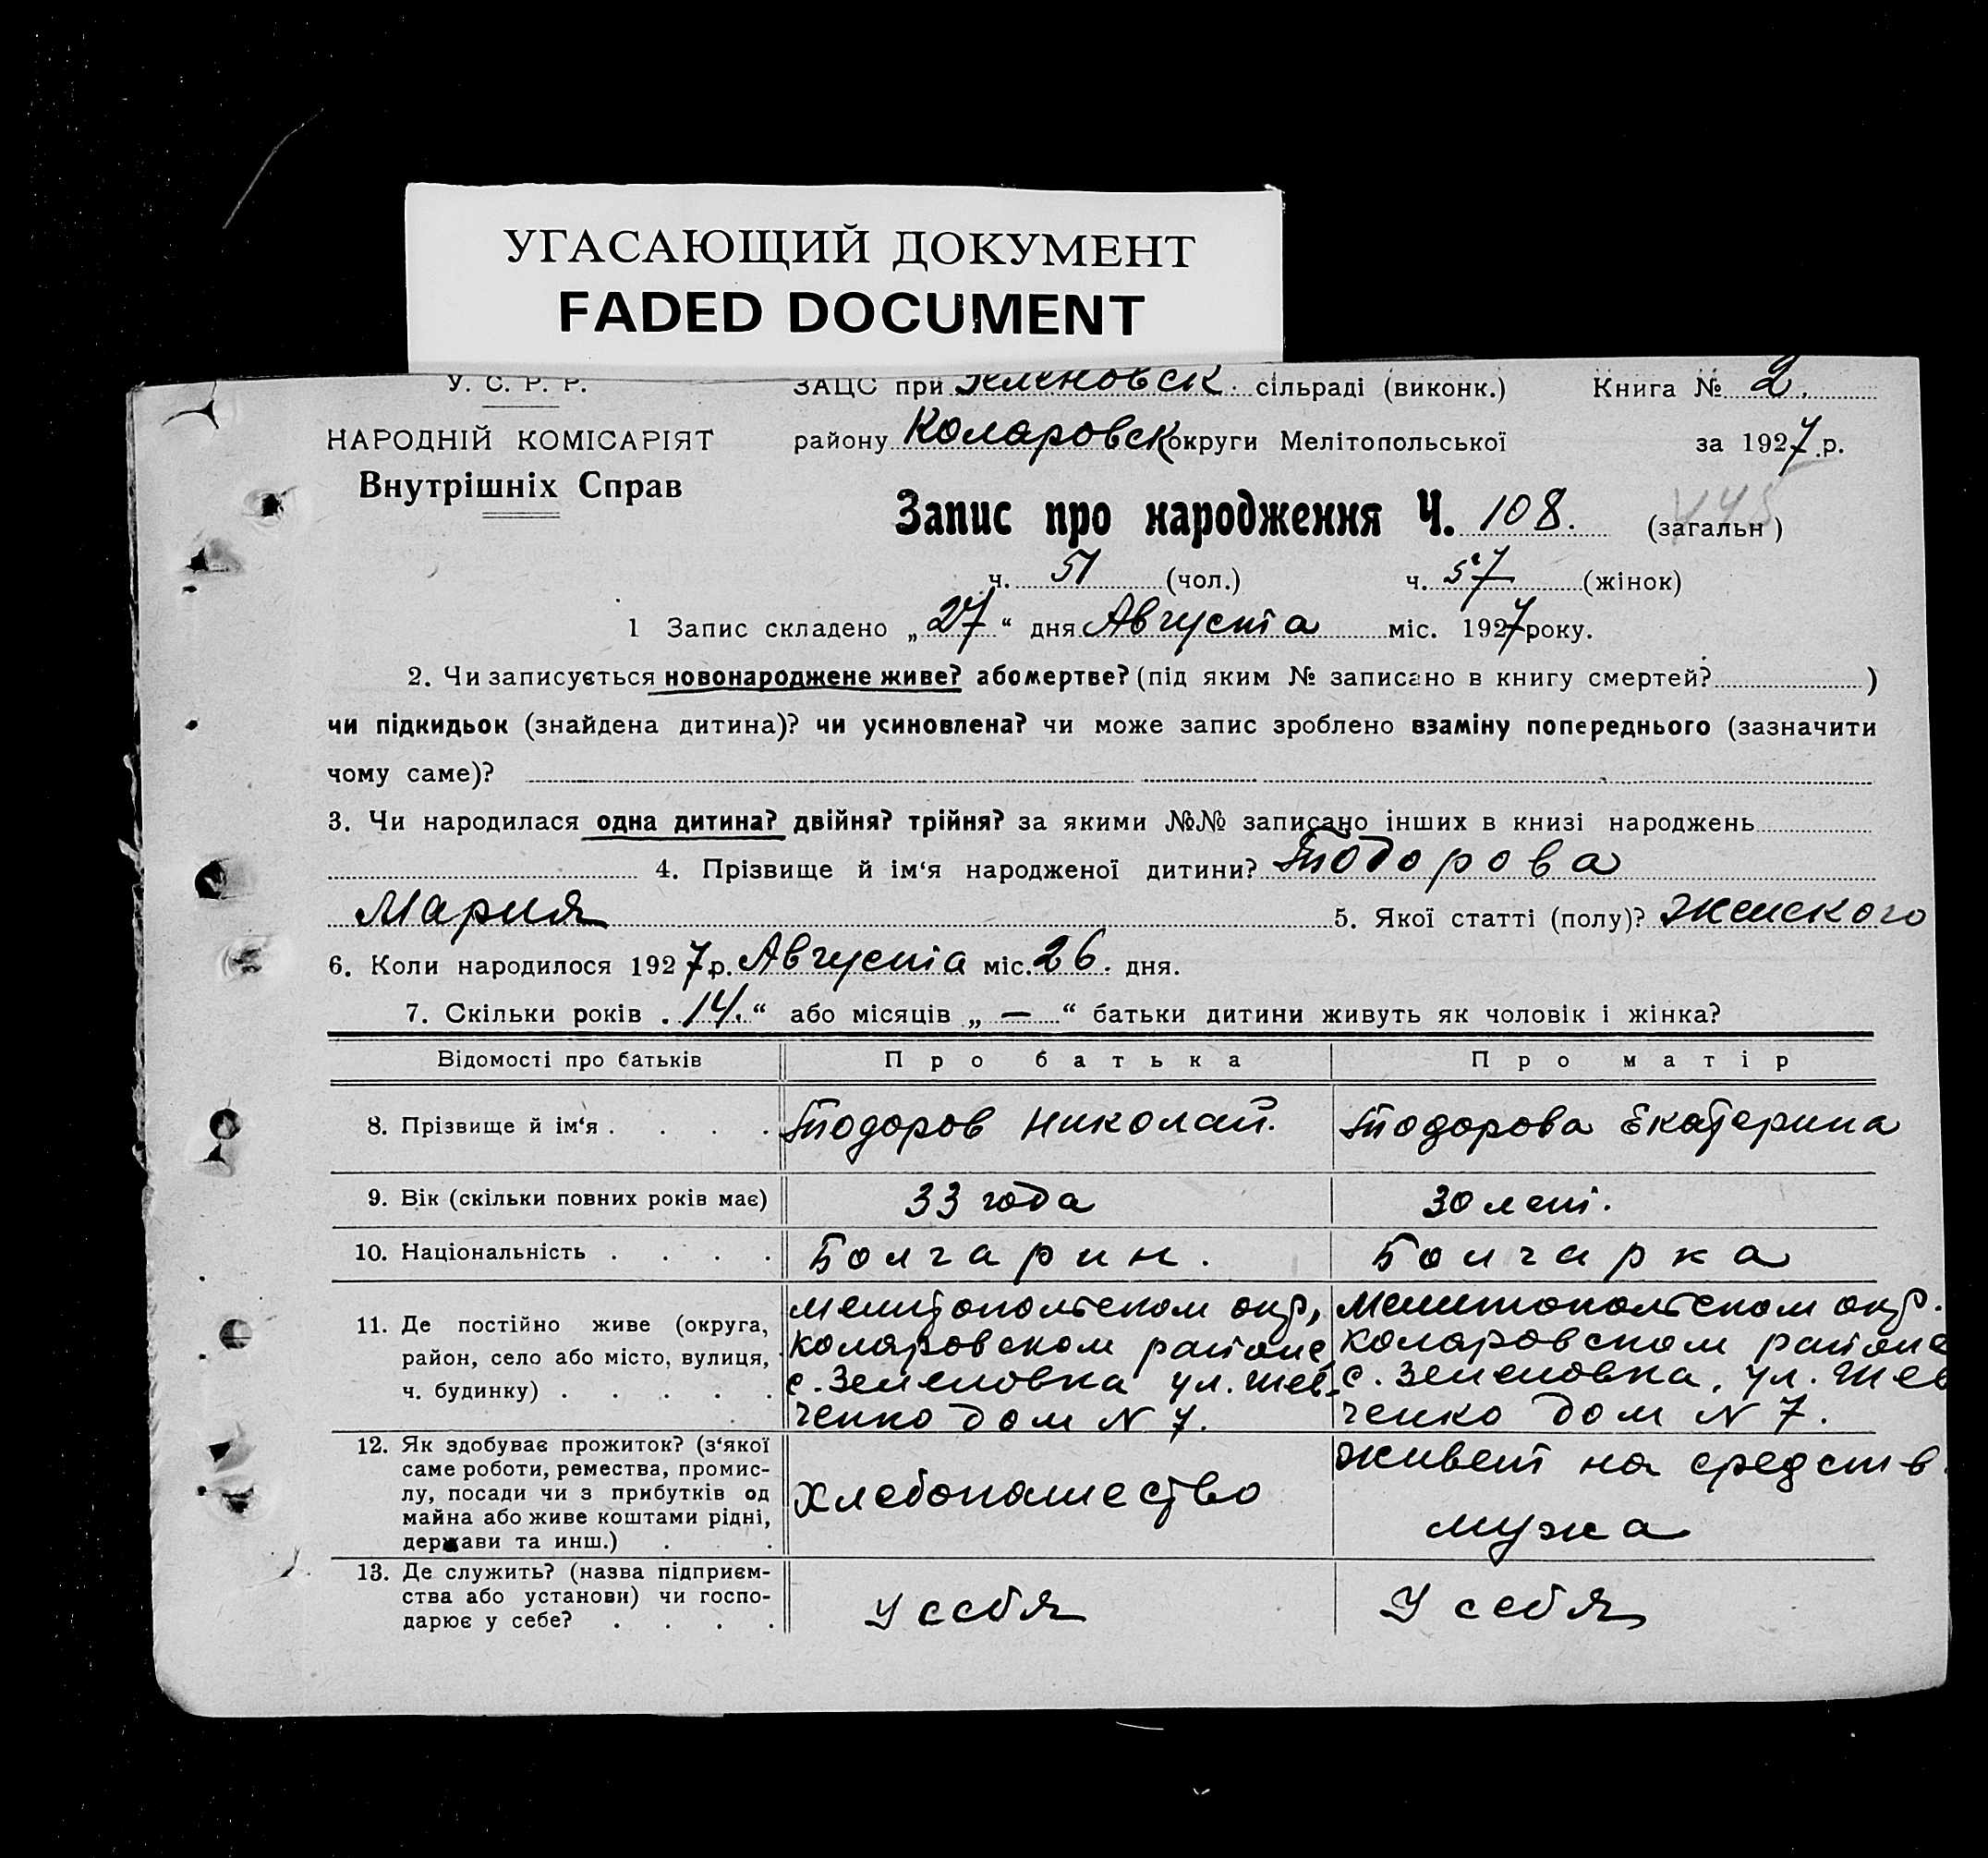 УГАСАЮЩИЙ ДОКУМЕНТ
FADED DOCUMENT
У. С. Р. Р.
НАРОДНІЙ КОМІСАРІЯТ
Внутрішніх Справ
ЗАЦС при Зеленовск. сільраді (виконк.) Книга № 2.
району Коларовск округи Мелітопольської за 1927 р.
Запис про народження Ч. 108. (загальн)
ч. 51 (чол.) ч. 57 (жінок)
1 Запис складено „27“ дня Августа міс. 1927 року.
2. Чи записується новонароджене живе? або мертве? (під яким № записано в книгу смертей? )
чи підкидьок (знайдена дитина)? чи усиновлена? чи може запис зроблено взаміну попереднього (зазначити
чому саме)?
3. Чи народилася одна дитина? двійня? трійня? за якими №№ записано інших в книзі народжень
4. Прізвище й ім‘я народженої дитини? Тодорова
Мария 5. Якої статті (полу)? Женского
6. Коли народилося 1927 р. Августа міс. 26. дня.
7. Скільки років „14.“ або місяців „—“ батьки дитини живуть як чоловік і жінка?
Відомості про батьків Про батька Про матір
8. Прізвище й ім‘я . . . . Тодоров Николай. Тодорова Екатерина
9. Вік (скільки повних років має) 33 года 30 лет.
10. Національність . . . . Болгарин. Болгарка
11. Де постійно живе (округа,
район, село або місто, вулиця,
ч. будинку) . . . . .
Мелитопольском окр,
Коларовском районе,
с. Зеленовка ул. Шев-
ченко дом N 7.
Мелитопольском окр.
Коларовском районе
с. Зеленовка, ул. Шев
ченко дом N 7.
12. Як здобуває прожиток? (з‘якої
саме роботи, ремества, промис-
лу, посади чи з прибутків од
майна або живе коштами рідні,
держави та инш.) . . .
Хлебопашество
Живет на средств.
мужа
13. Де служить? (назва підприєм-
ства або установи) чи госпо-
дарює у себе? . . . .
У себя
У себя